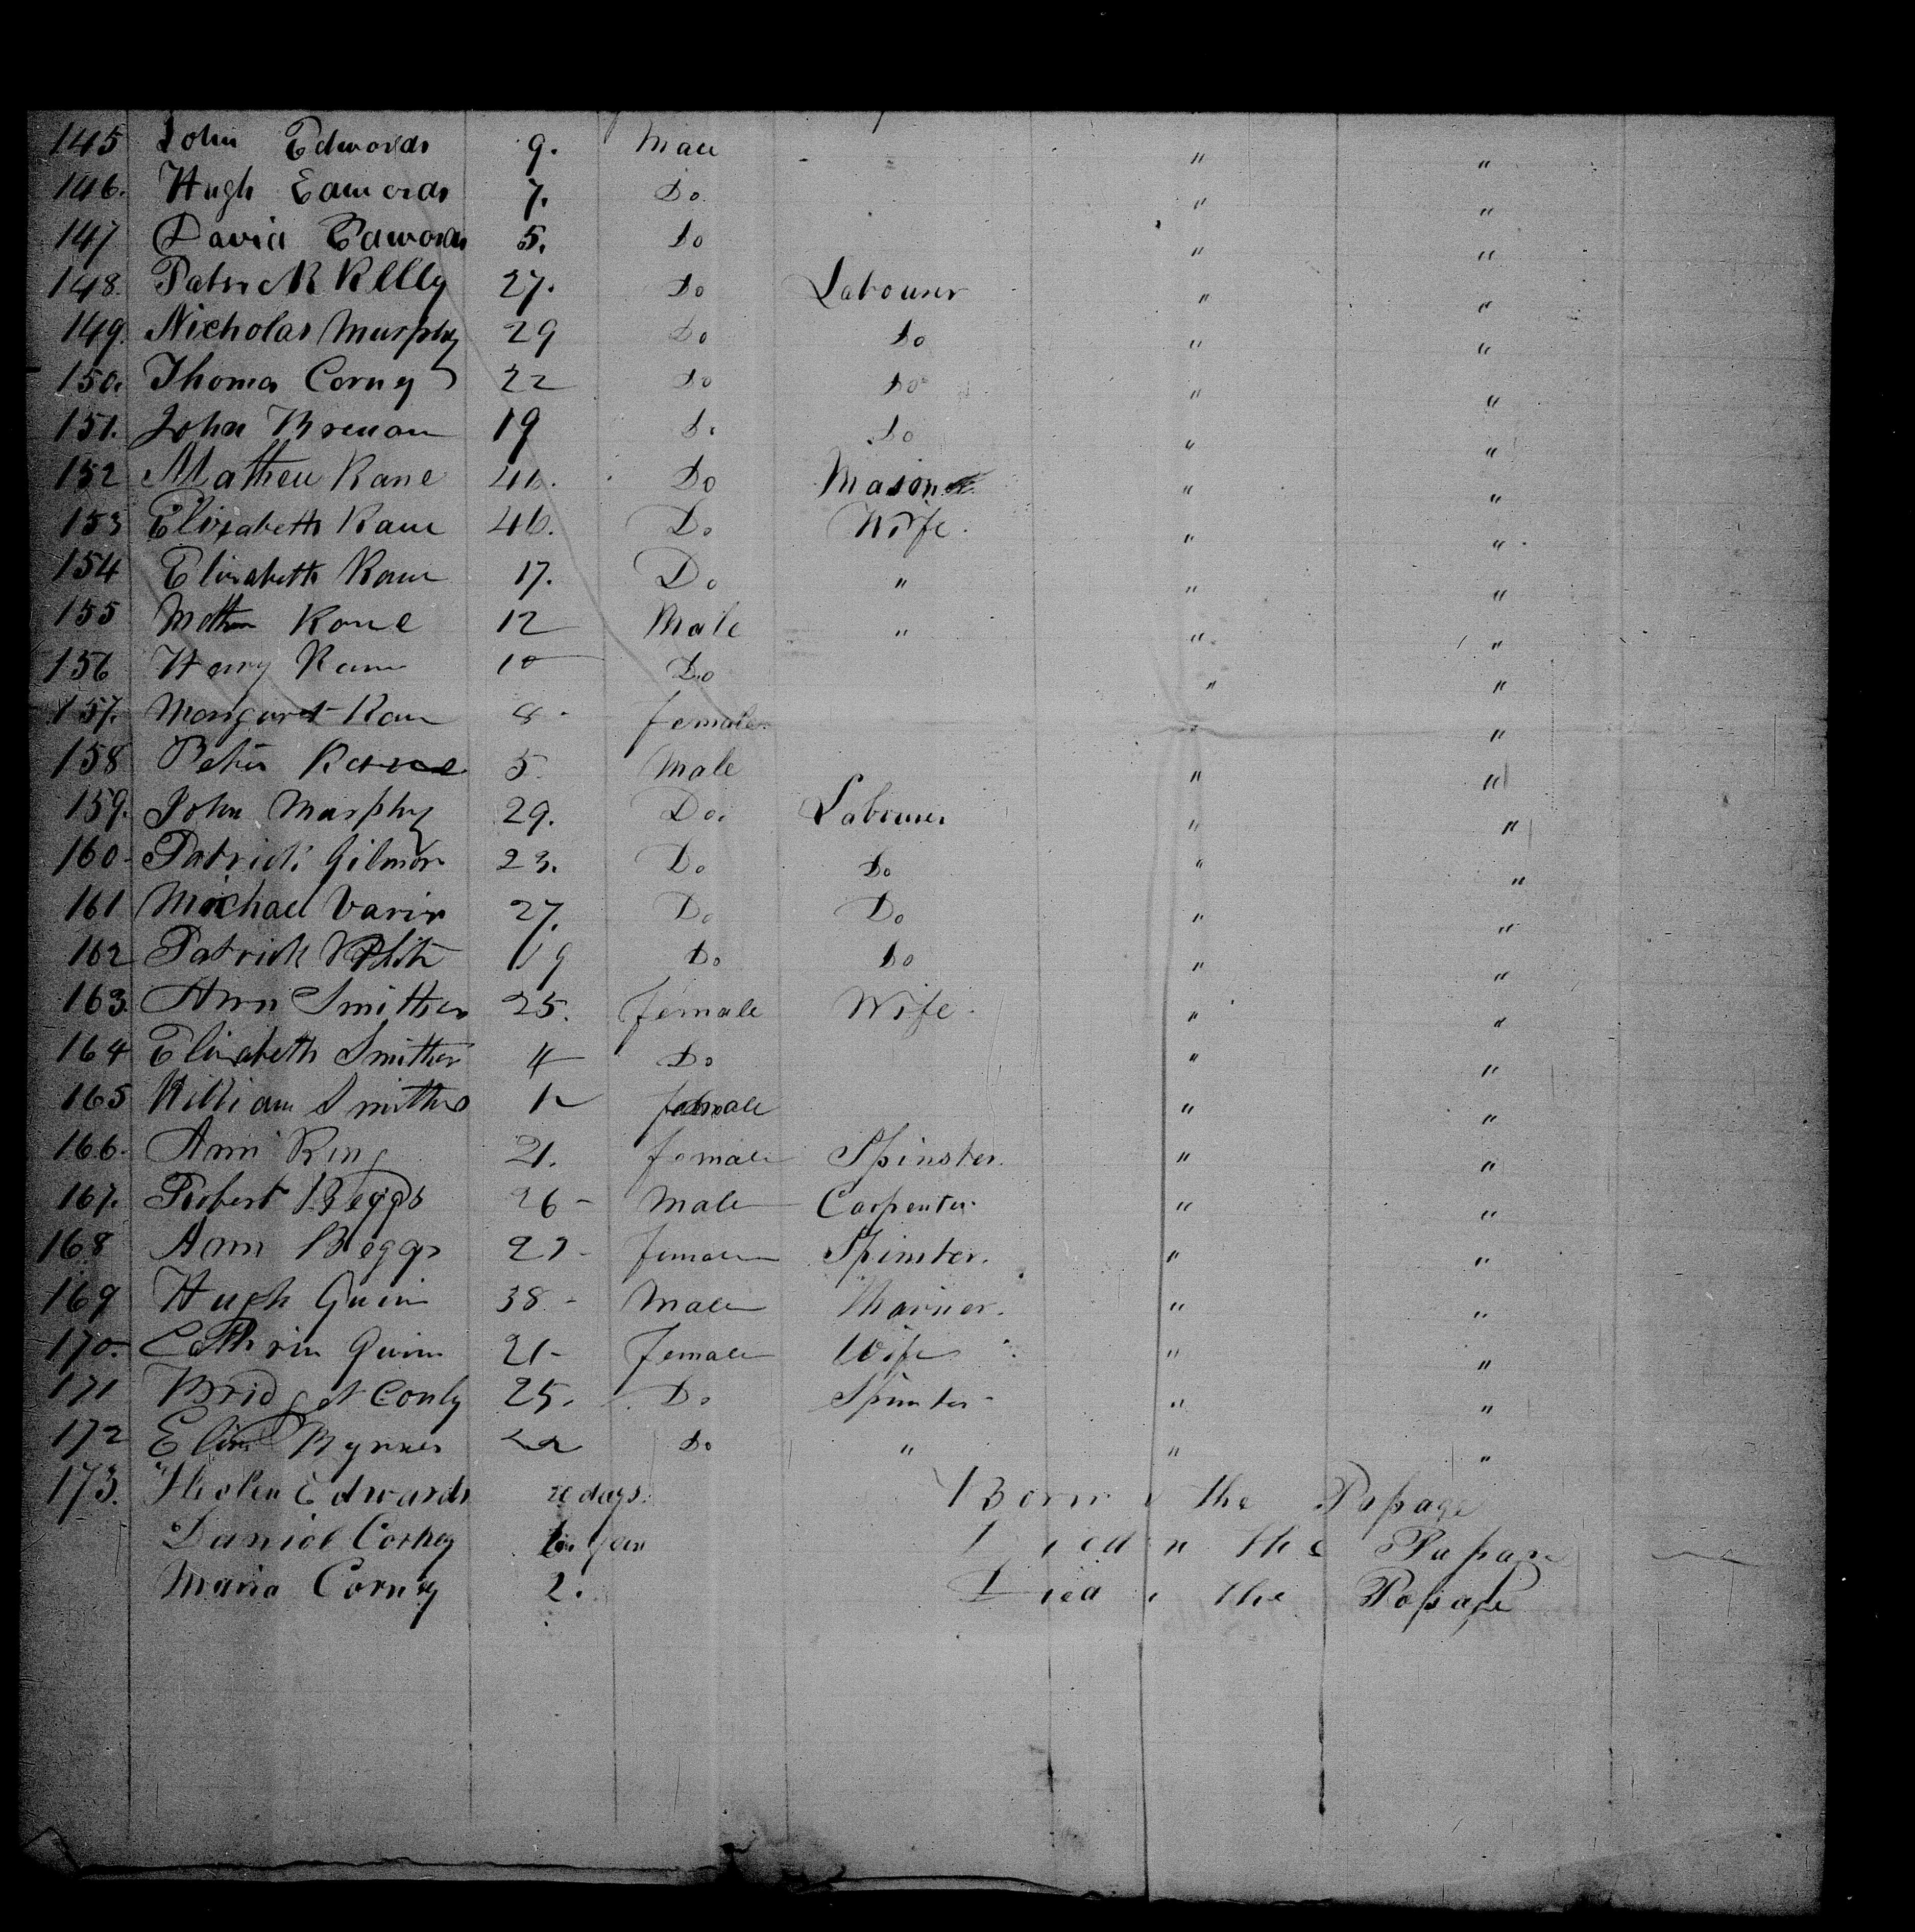 145 John Edwards 9. Male " "
146. Hugh Edwards 7. Do " "
147 David Edwards 5. Do " "
148. Patrick Kelly 27. Do Labourer " "
149. Nicholas Murphy 29 Do Do " "
150. Thomas Corney 22 Do Do " "
151. John Brenan 19 Do Do " "
152 Mathew Kane 46. Do Mason " "
153 Elizabeth Kane 46. Do Wife. " "
154 Elizabeth Kane 17. Do " " "
155 Kane 12 Male " " "
156 Kane 10 Do " "
157. Margaret Kane 8 - female "
158 Peter Kane 5. Male " "
159. John Murphy 29. Do. Labourer " "
160 - Patrick Gilmore 23. Do Do " "
161 Michael 27. Do Do " "
162 Patrick 19 Do Do " "
163. Ann Smithers 25. female Wife. " "
164 Elizabeth Smithers 4 Do " "
165 William Smithers 1 " "
166. Ann King 21. female Spinster. " "
167. Robert Beggs 26 - Male Carpenter. " "
168 Ann Beggs - female Spinster. " "
169 Hugh Quinn 38 - Male Mariner. " "
170. Cathrin Quinn 21 - female Wife " "
171 Bridget Conly 25. Do Spinster - " "
172 Byrnes 22 Do " " "
173. Helen Edwards days. Born the Pasage
Daniel year Died in the Pasage
Maria Corney 2. Died the Pasage